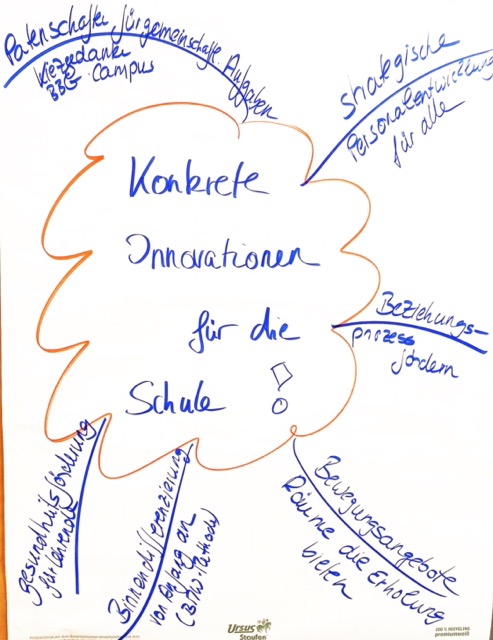 Patenschaften für gemeinschaftl. Aufgaben
BBG Campus
strategische
Personalentwicklung
für alle
Konkrete
Innovationen
für die
Schule !
Beziehungs-
prozess
fördern
gesundheitsförderung
für Lehrende
Binnendifferenzierung
von Anfang an
Bewegungsangebote
Räume die Erholung
bieten
Ursus
Staufen
100 % RECYCLING
premiumweiß